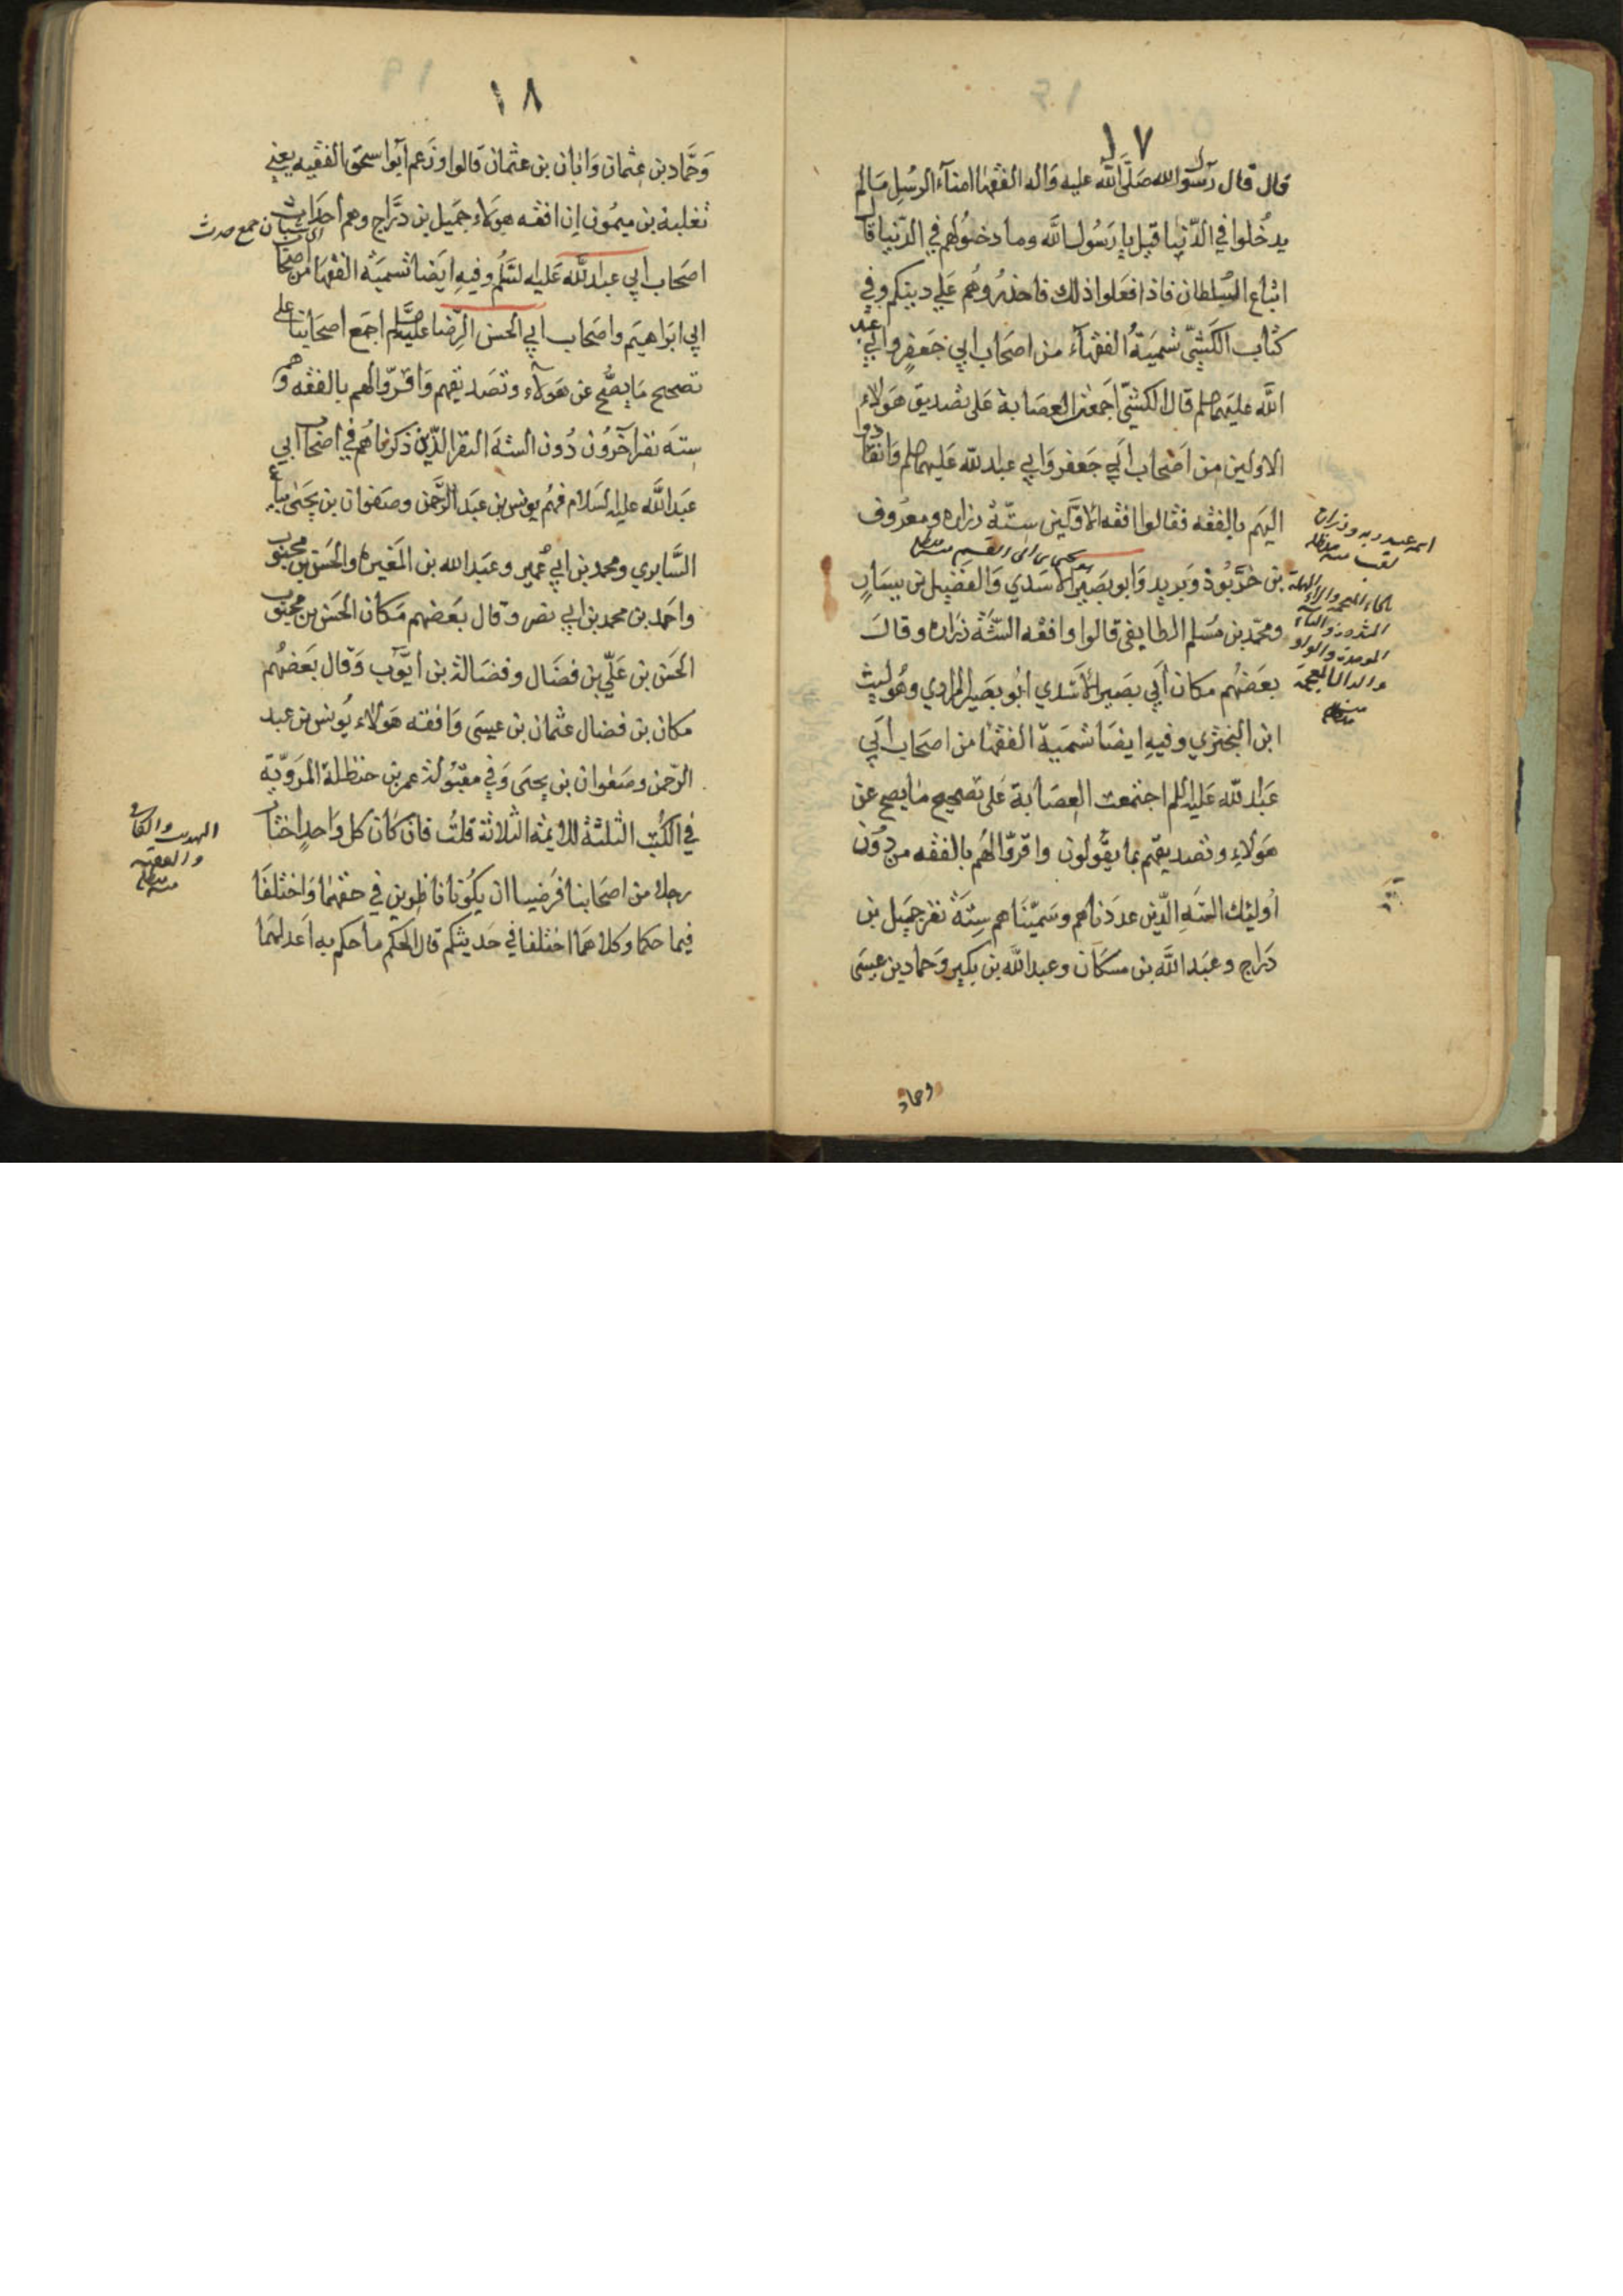 ١٧
قال قال رسول الله صَلَّى الله عليه وَاله الفقهَا امنآء الرسُل مَا لم
يدخُلوا في الدّنيا قيل يا رَسُول الله وما دخُولهم في الدّنيا قال
اتباع السُّلطان فاذا فعَلوا ذلك فاحذرُوهُم عَلي دينكم وفي
كتاب الكَشّي تسْميَةُ الفقهآء من اصحَاب ابي جَعفرٍ وابي عَبد
الله عليهما السلم قال الكشّي اجمَعَت العصَابة عَلى تصْديق هَؤلاء
الاولين من اصْحاب ابي جَعفر وَابي عبد الله عَليهما السلم وَانقادوا
اليهَم بالفقْه فقالوا افقه الاوّلين ستّة زراره ومعرُوف
بن خرَّبُوذ وَبريد وَابو بصَير الاسَدي وَالفضَيل بن يسَارٍ
ومحمّد بن مسْلم الطايفى قالوا وافقه السّتّة زراره وقالَ
بعَضهُم مكان اَبي بصَير الاَسَدي ابُو بصَير المرادي وهُو ليث
ابن البخترْي وفيهِ ايضَا تسْميَة الفقهَا من اصحَاب اَبي
عَبد الله عَليه السلم اجتمعت العِصَابة عَلى تصْحيح مَا يصح عن
هؤلاءِ وتصْديقهم بما يقُولون واقرّوا لهُم بالفقْه من دُون
اُولئك السّتَهِ الّذين عدَدناهم وسَميْنَاهم سِتّة نفر جميَل بن
دَراج وعبَد الله بن مسْكَان وعبد الله بن بكير وَحماد بن عيسَى
وحماد
اسمه عبد ربه وزرارة
لقب منه
بالخاء المعجمة والراء المهملة
المشددة والباء
الموحدة والواو
والذال المعجمة
يحيى بن ابى القسم
١٨
وَحَمَّاد بن عثمان وَابان بن عثمان قَالوا وزَعم ابَوا سحق الفقيه يعني
ثعْلبة بن ميمُون اِن افقه هؤلاء جميَل بن دَرَّاج وهم احدَاث
اصَحاب ابي عبد الله عَليه السَّلم وفيهِ ايَضا تسميَة الفقهَا من اصحَاب
ابي ابرَاهيَم واصحَاب ابي الحسَن الرّضا عليهما السلم اجمَع اصحَابنا على
تصحيح مَا يصُحّ عن هَؤلآء وتصَديقهم وَاقرّوا لهم بالفقْه وهم
ستة نفر اخَرُون دُون السّتة النفر الّذين ذكرناهُم في اصْحاب ابي
عبَد الله عليه السَلام فهُم يونس بن عبَد الرَّحمن وصفوان بن يحيَى بياع
السَّابري ومحمد بن ابي عُمير وعبَد الله بن المغيره والحَسَن بن محبُوب
واحمَد بن محمد بن ابي نصر وقال بعَضهم مكان الحسَن بن محبوب
الحسَن بن عَليّ بن فضَال وفضَالة بن ايّوب وَقال بعَضهُم
مكان بن فضال عثمان بن عيسَى وَافقه هَؤلاء يُونس بن عبد
الرّحمن وصَفوان بن يحيَى وَفي مقبُولة عمر بن حنظلة المَرَوّية
في الكتُب الثلثَّة للايمّة الثّلاثة قلتُ فان كَان كل وَاحدٍ اختَار
رجلا من اصحَابنا فرَضيا ان يكُونا ناظِرين في حقهمَا وَاختلفا
فيما حكما وكلاهمَا اختلفا في حَديثكم قال الحكم ما حكم به اعدلهمَا
اي شبان جمع حدث
التهذيب والكافى
والفقيه